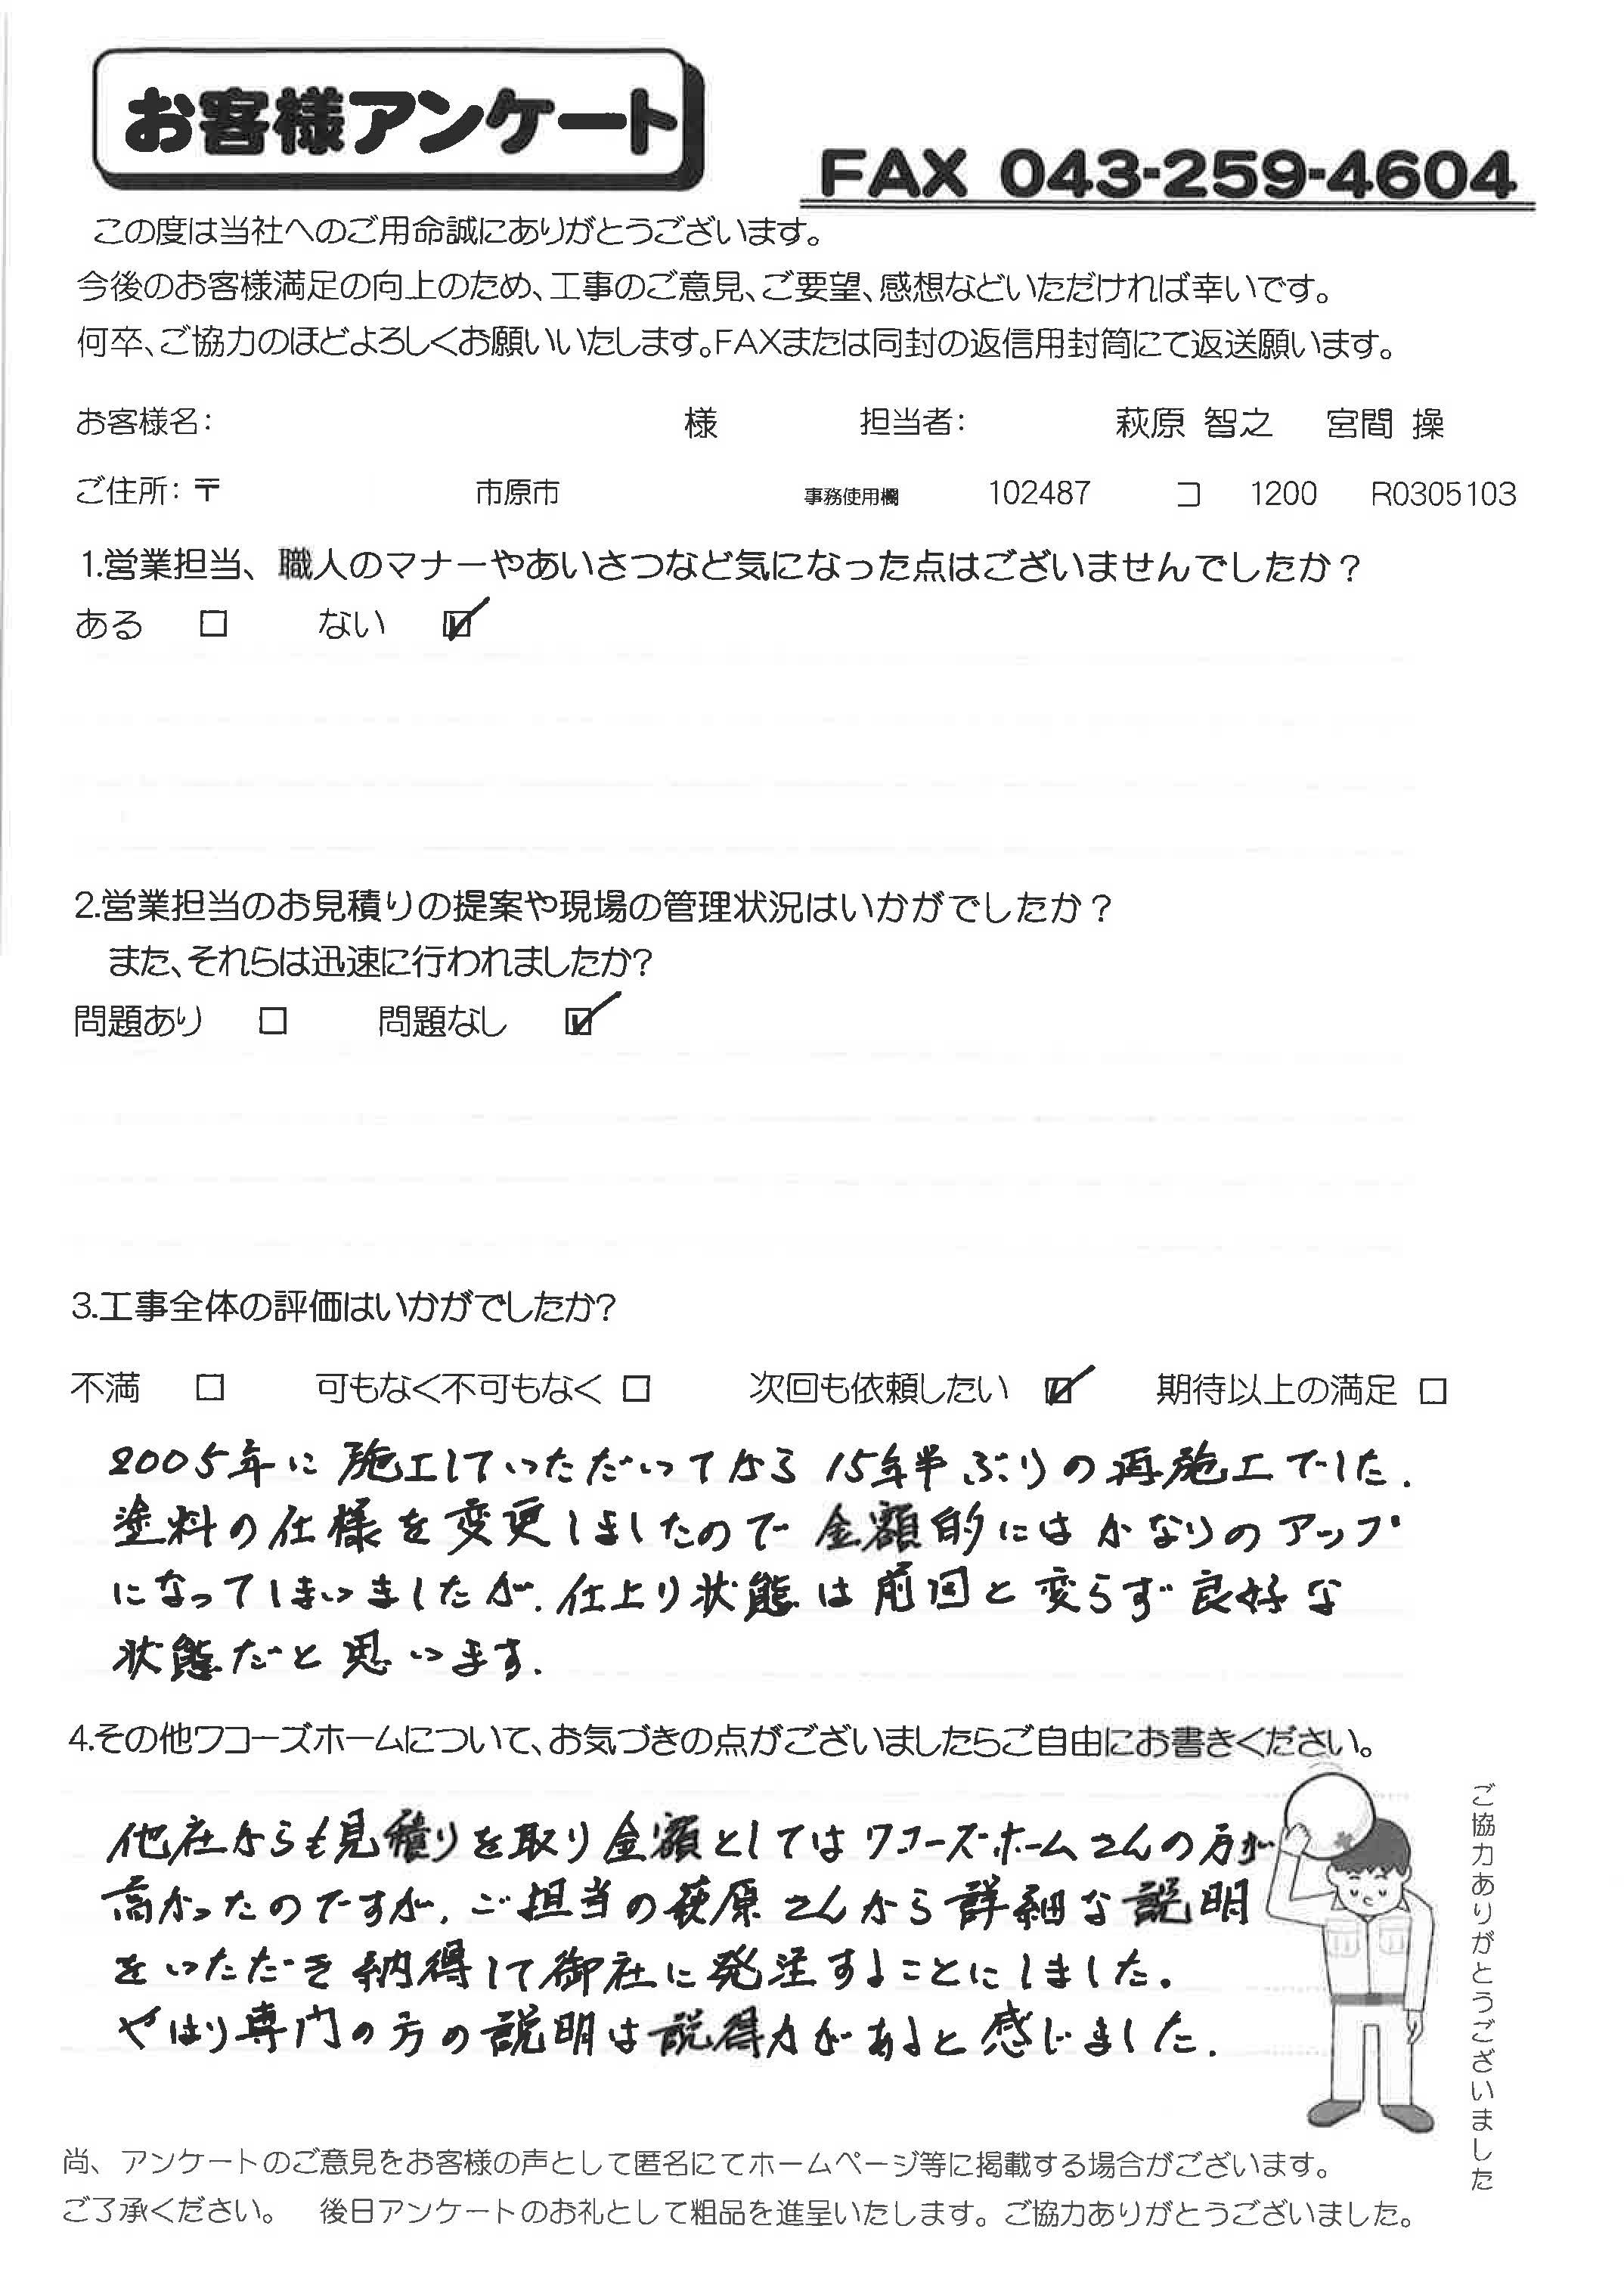 お客様アンケート
FAX 043-259-4604
この度は当社へのご用命誠にありがとうございます。
今後のお客様満足の向上のため、工事のご意見、ご要望、感想などいただければ幸いです。
何卒、ご協力のほどよろしくお願いいたします。FAXまたは同封の返信用封筒にて返送願います。
お客様名： 様 担当者： 萩原 智之 宮間 操
ご住所：〒 市原市 事務使用欄 102487 コ 1200 R0305103
1.営業担当、職人のマナーやあいさつなど気になった点はございませんでしたか？
ある □ ない ☑
2.営業担当のお見積りの提案や現場の管理状況はいかがでしたか？
また、それらは迅速に行われましたか?
問題あり □ 問題なし ☑
3.工事全体の評価はいかがでしたか?
不満 □ 可もなく不可もなく □ 次回も依頼したい ☑ 期待以上の満足 □
2005年に施工していただいてから15年半ぶりの再施工でした.
塗料の仕様を変更しましたので金額的にはかなりのアップ
になってしまいましたが、仕上り状態は前回と変らず良好な
状態だと思います.
4.その他ワコーズホームについて、お気づきの点がございましたらご自由にお書きください。
他社からも見積りを取り金額としてはワコーズホームさんの方が
高かったのですが、ご担当の萩原さんから詳細な説明
をいただき納得して御社に発注することにしました。
やはり専門の方の説明は説得力があると感じました.
ご協力ありがとうございました
尚、アンケートのご意見をお客様の声として匿名にてホームページ等に掲載する場合がございます。
ご了承ください。 後日アンケートのお礼として粗品を進呈いたします。ご協力ありがとうございました。